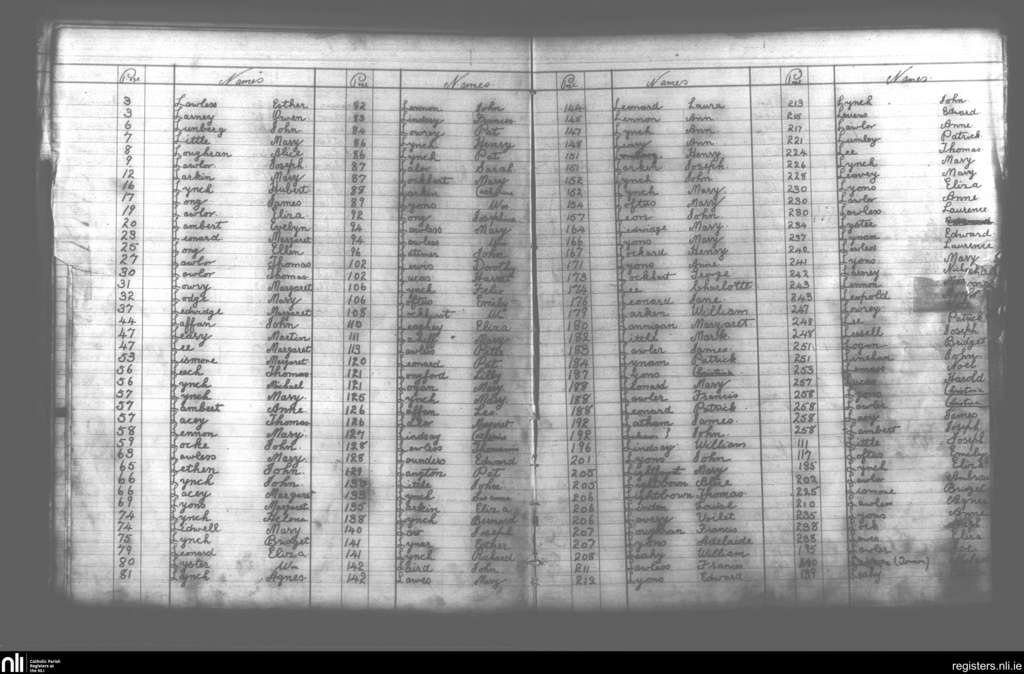 Pge Names Pge Names Pge Names Pge Names
3 Lawless Esther
3 Larney Owen
6 Lumberg John
7 Little Mary
8 Loughran Alice
9 Lawlor Joseph
12 Larkin Mary
16 Lynch Hubert
17 Long James
19 Lawlor Eliza
20 Lambert Evelyn
23 Leonard Margaret
25 Long Ellen
27 Lawlor Thomas
30 Lawlor Thomas
31 Lowry Margaret
32 Lodge Mary
37 Ledwidge Margaret
44 Laffan John
47 Leary Martin
47 Lee Margaret
53 Lismore Margaret
56 Leech Thomas
56 Lynch Michael
57 Lynch Mary
57 Lambert Anne
57 Lacey Thomas
58 Lennon Mary
59 Locke John
63 Lawless Mary
65 Lethen John
66 Lynch John
66 Lacey Margaret
69 Lyons Margaret
74 Lynch Helena
74 Ledwell Mary
75 Lynch Bridget
79 Leonard Eliza
80 Lyster Wm
81 Lynch Agnes
82 Lennon John
83 Lindsay Francis
84 Lowry Pat
86 Lynch Henry
86 Lynch Pat
87 Lalor Sarah
87 Lockhart Mary
88 Larkin
89 Lyons Wm
92 Long Josephine
94 Lawless Mary
94 Lawless
96 John
102 Lewis Dorothy
102 Lucas
106 Lynch Felix
106 Loftus Emily
108 Lockhart Wm
110 Eliza
111 Mary
113 Lawless
120 Leonard Pat
121 Longford
121 Logan May
125 Lynch Mary
126 Laffan Leo
126 Lalor Margaret
127 Lindsay
128 Lawless
128 Lounders Edward
129 Langton Pat
130 Little John
133 Lynch
135 Larkin Eliza
138 Lynch Bernard
140 Law Joseph
141 Esther
141 Lynch Richard
142 Laird John
142 Lawes Mary
144 Leonard Laura
145 Lennon Ann
147 Lynch Ann
148 Leary Ann
151 Henry
151 Larkin Joseph
152 Lynch John
152 Lynch Mary
154 Loftus Mary
157 Leon John
164 Ledwidge Mary
166 Lyons Mary
167 Lockard Henry
171 Lyons Annie
173 Lockhart George
174 Lee Charlotte
176 Leonard Jane
179 Larkin William
180 Lannigan Margaret
182 Little Mark
183 Lawler James
184 Lynam Patrick
187 Lyons Christina
188 Leonard Mary
188 Lawler Francis
188 Leonard Patrick
192 Latham James
192 John
196 Lindsay William
201 Lyons John
205 Lightbown Mary
205 Lightbown Alice
206 Lightbown Thomas
206 Linden Louisa
206 Lavery Violet
207 Francis
207 Lyons Adelaide
208 Leahy William
211 Lawless Francis
212 Lyons Edward
213 Lynch John
215 Edward
217 Lawlor Anne
221 Lumley Patrick
224 Lee Thomas
226 Lynch Mary
228 Leavey Mary
230 Lyons Eliza
230 Lawlor Anne
230 Lawless Laurence
234 Lyster
237 Lynam Edward
240 Lawless Laurence
241 Lyons Mary
242 Larney
243 Lennon
243 Leopold
247 Lowrey
248 Lee Patrick
248 Lessell Joseph
251 Logan Bridget
251 Linehan John
253 Lomass Noel
257 Lucas Harold
258 Lyons Christina
258 Lawler Christina
258 Lacey James
258 Lambert Joseph
111 Little Joseph
117 Loftus Emily
185 Lynch Eliza
202 Lawlor
225 Lismore Bridget
210 Lawless Agnes
235 Lyons Anne
238 Lock
238 Lawes Eliza
195 Lawler
240 (Town)
139 Leahy
nli Catholic Parish Registers at the NLI
registers.nli.ie